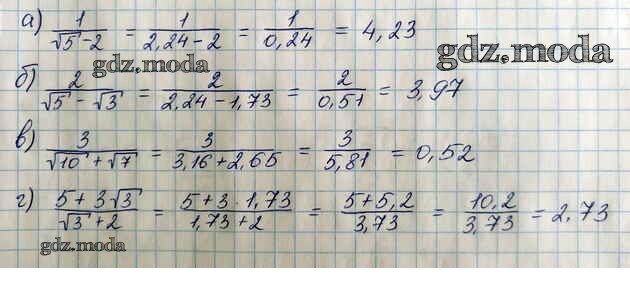 а) 1/(√5 - 2) = 1/(2,24 - 2) = 1/0,24 = 4,23
gdz.moda
gdz.moda
б) 2/(√5 - √3) = 2/(2,24 - 1,73) = 2/0,51 = 3,97
в) 3/(√10 + √7) = 3/(3,16 + 2,65) = 3/5,81 = 0,52
г) (5 + 3√3)/(√3 + 2) = (5 + 3 · 1,73)/(1,73 + 2) = (5 + 5,2)/3,73 = 10,2/3,73 = 2,73
gdz.moda